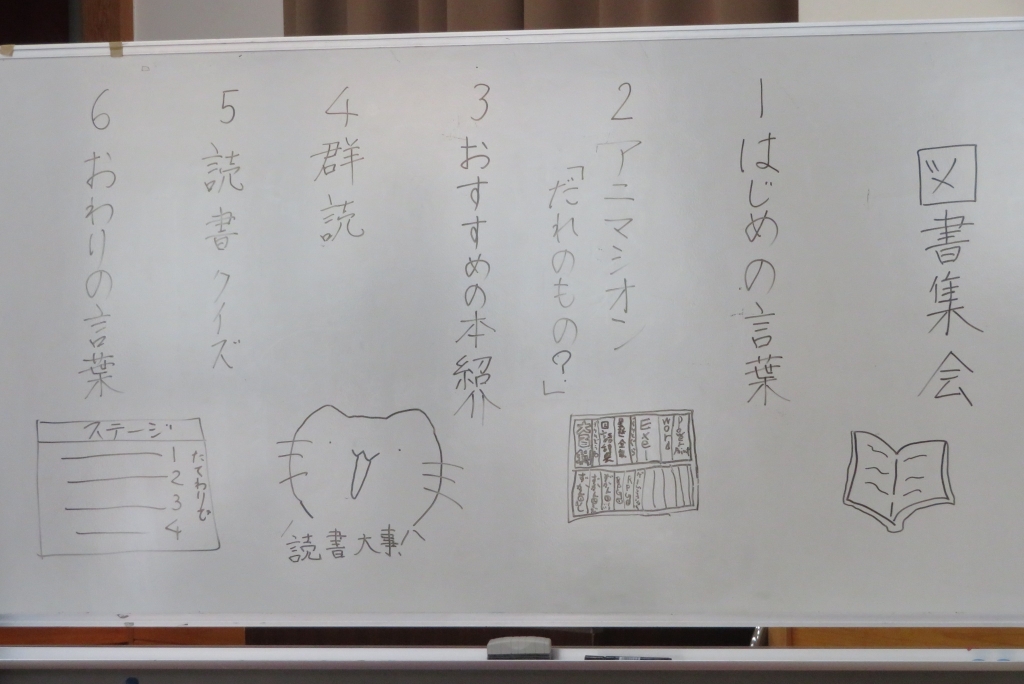 図書集会
1 はじめの言葉
2 アニマシオン
「だれのもの？」
3 おすすめの本紹介
4 群読
5 読書クイズ
6 おわりの言葉
Excel
word
読書大事!
ステージ
1
2
3
4
たてわりで